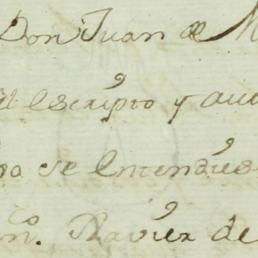 Don Juan de M
el escripto y au
se entendies
n.º Xavier de